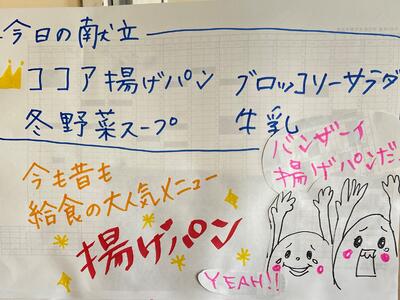 今日の献立
ココア揚げパン ブロッコリーサラダ
冬野菜スープ 牛乳
バンザーイ
揚げパンだー
今も昔も
給食の大人気メニュー
揚げパン
YEAH!!